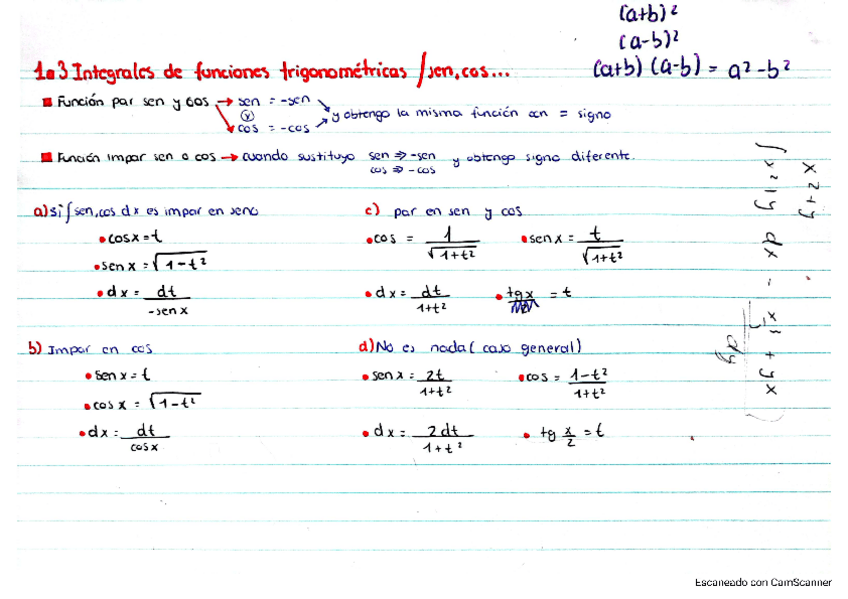 (a+b)²
(a-b)²
(a+b) (a-b) = a² - b²
1.3 Integrales de funciones trigonométricas / sen, cos...
Función par sen y cos → sen = -sen
(y)
cos = -cos
y obtengo la misma función con = signo
Función impar sen o cos → cuando sustituyo sen ⇒ -sen y obtengo signo diferente.
cos ⇒ -cos
a) si ∫ sen, cos dx es impar en seno
• cosx = t
• sen x = √(1-t²)
• dx = dt / -sen x
c) par en sen y cos
• cos = 1 / √(1+t²) • sen x = t / √(1+t²)
• dx = dt / 1+t² • tg x = t
b) Impar en cos
• sen x = t
• cos x = √(1-t²)
• dx = dt / cos x
d) No es nada (caso general)
• sen x = 2t / 1+t² • cos = 1-t² / 1+t²
• dx = 2dt / 1+t² • tg x/2 = t
x² + y
Escaneado con CamScanner